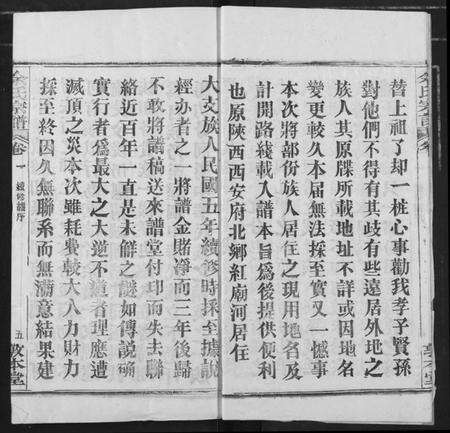 替上祖了却一桩心事勸我孝子賢孫
對他們不得有其歧有些遠居外地之
族人其原牒所載地址不詳或因地名
變更較久本届無法採至實又一憾事
本次將部份族人居住之現用地名及
計開路綫載入譜本旨爲後提供便利
也原陝西西安府北鄉紅廟河居住
大支族人民國五年續修時採至據説
經办者之一將譜金賭凈而三年後歸
不敢將譜稿送來譜堂付印而失去聯
絡近百年一直是未觧之謎如傳説確
實行者爲最大之大逆不道者理應遭
滅頂之災本次雖耗費較大人力財力
採至終因久無聯系而無满意結果建
余氏宗譜 卷一 續修譜序 五 敦本堂